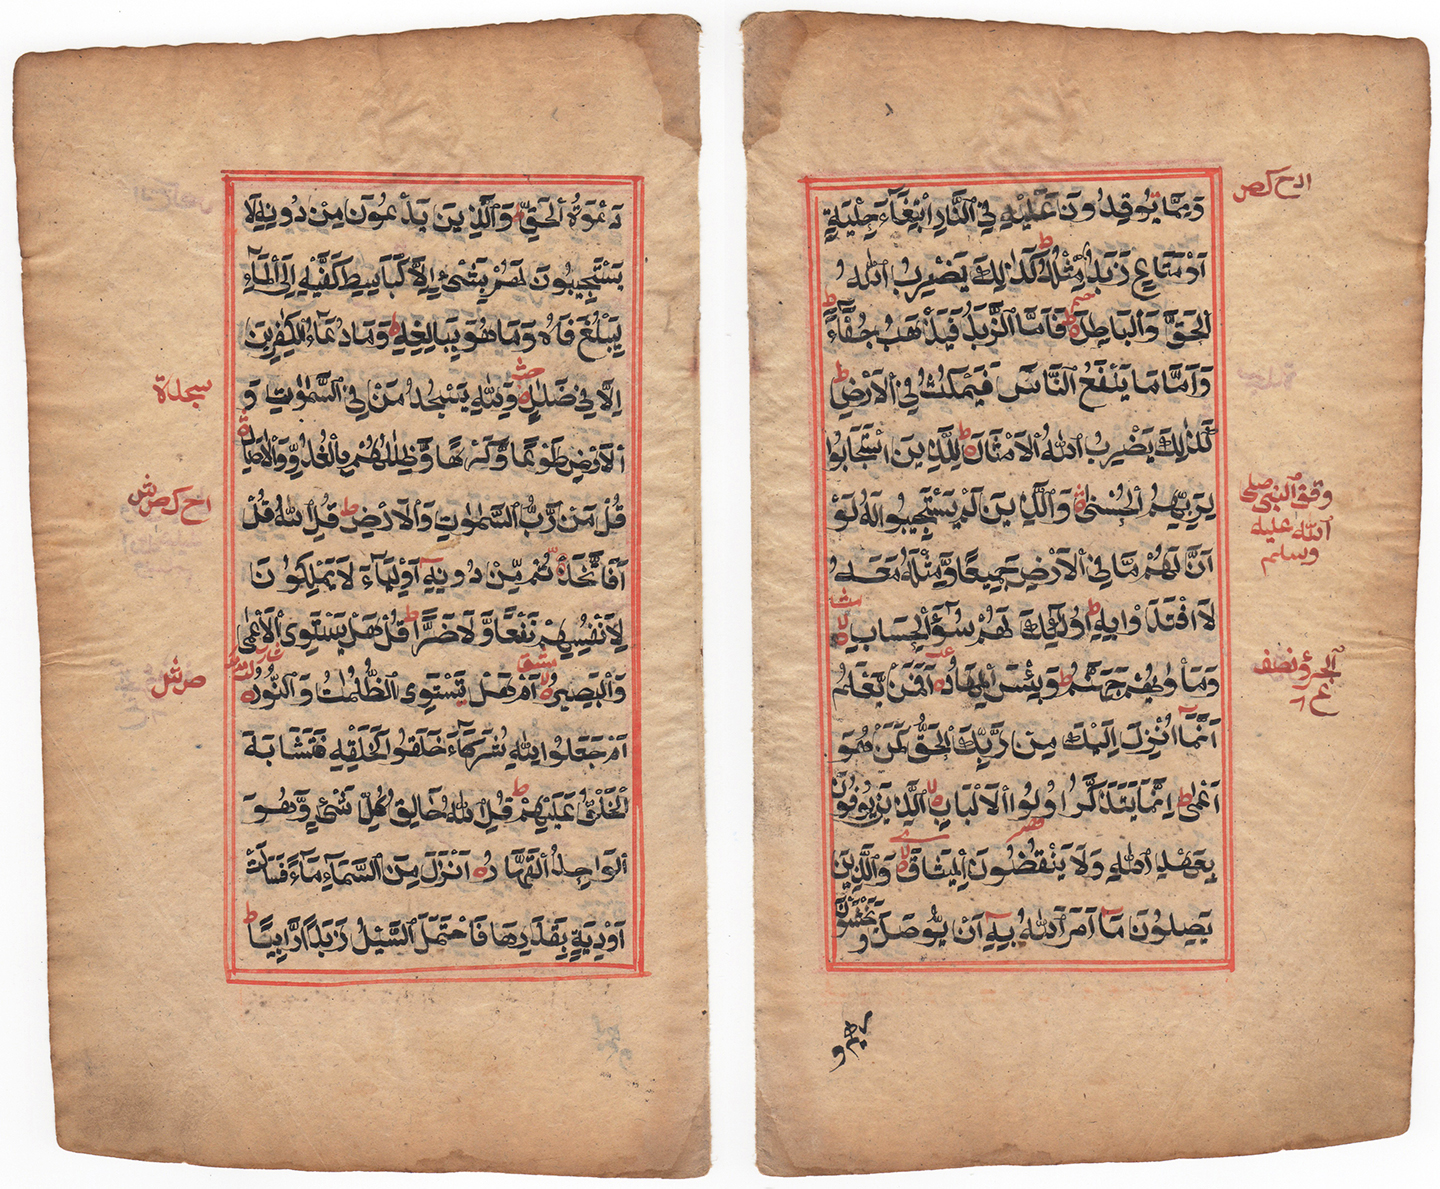 دَعْوَةُ الْحَقِّ وَالَّذِينَ يَدْعُونَ مِنْ دُونِهِ لَا
يَسْتَجِيبُونَ لَهُمْ بِشَيْءٍ إِلَّا كَبَاسِطِ كَفَّيْهِ إِلَى الْمَاءِ
لِيَبْلُغَ فَاهُ وَمَا هُوَ بِبَالِغِهِ ط وَمَا دُعَاءُ الْكٰفِرِينَ
سجدة
إِلَّا فِي ضَلٰلٍ وَلِلّٰهِ يَسْجُدُ مَنْ فِي السَّمٰوٰتِ وَ
الْأَرْضِ طَوْعًا وَّكَرْهًا وَّظِلٰلُهُمْ بِالْغُدُوِّ وَالْاٰصَالِ
قُلْ مَنْ رَّبُّ السَّمٰوٰتِ وَالْأَرْضِ ط قُلِ اللّٰهُ قُلْ
أَفَاتَّخَذْتُمْ مِّنْ دُونِهِ أَوْلِيَاءَ لَا يَمْلِكُونَ
لِأَنْفُسِهِمْ نَفْعًا وَّلَا ضَرًّا ط قُلْ هَلْ يَسْتَوِي الْأَعْمٰى
وَالْبَصِيرُ أَمْ هَلْ تَسْتَوِي الظُّلُمٰتُ وَالنُّورُ
أَمْ جَعَلُوا لِلّٰهِ شُرَكَاءَ خَلَقُوا كَخَلْقِهِ فَتَشَابَهَ
الْخَلْقُ عَلَيْهِمْ ط قُلِ اللّٰهُ خَالِقُ كُلِّ شَيْءٍ وَّهُوَ
الْوَاحِدُ الْقَهَّارُ أَنْزَلَ مِنَ السَّمَاءِ مَاءً فَسَالَتْ
أَوْدِيَةٌ بِقَدَرِهَا فَاحْتَمَلَ السَّيْلُ زَبَدًا رَّابِيًا ط
وَمِمَّا يُوقِدُونَ عَلَيْهِ فِي النَّارِ ابْتِغَاءَ حِلْيَةٍ
أَوْ مَتَاعٍ زَبَدٌ مِّثْلُهُ ط كَذٰلِكَ يَضْرِبُ اللّٰهُ
الْحَقَّ وَالْبَاطِلَ ط فَأَمَّا الزَّبَدُ فَيَذْهَبُ جُفَاءً ط
وَأَمَّا مَا يَنْفَعُ النَّاسَ فَيَمْكُثُ فِي الْأَرْضِ ط
كَذٰلِكَ يَضْرِبُ اللّٰهُ الْأَمْثَالَ ط لِلَّذِينَ اسْتَجَابُوا
لِرَبِّهِمُ الْحُسْنٰى وَالَّذِينَ لَمْ يَسْتَجِيبُوا لَهُ لَوْ
وقف النبي صلى
الله عليه
وسلم
أَنَّ لَهُمْ مَّا فِي الْأَرْضِ جَمِيعًا وَّمِثْلَهُ مَعَهُ
لَافْتَدَوْا بِهِ ط أُولٰئِكَ لَهُمْ سُوءُ الْحِسَابِ
وَمَأْوٰىهُمْ جَهَنَّمُ ط وَبِئْسَ الْمِهَادُ أَفَمَنْ يَّعْلَمُ
أَنَّمَا أُنْزِلَ إِلَيْكَ مِنْ رَّبِّكَ الْحَقُّ كَمَنْ هُوَ
أَعْمٰى ط إِنَّمَا يَتَذَكَّرُ أُولُوا الْأَلْبَابِ الَّذِينَ يُوفُونَ
بِعَهْدِ اللّٰهِ وَلَا يَنْقُضُونَ الْمِيثَاقَ وَالَّذِينَ
يَصِلُونَ مَا أَمَرَ اللّٰهُ بِهِ أَنْ يُّوصَلَ وَيَخْشَوْنَ